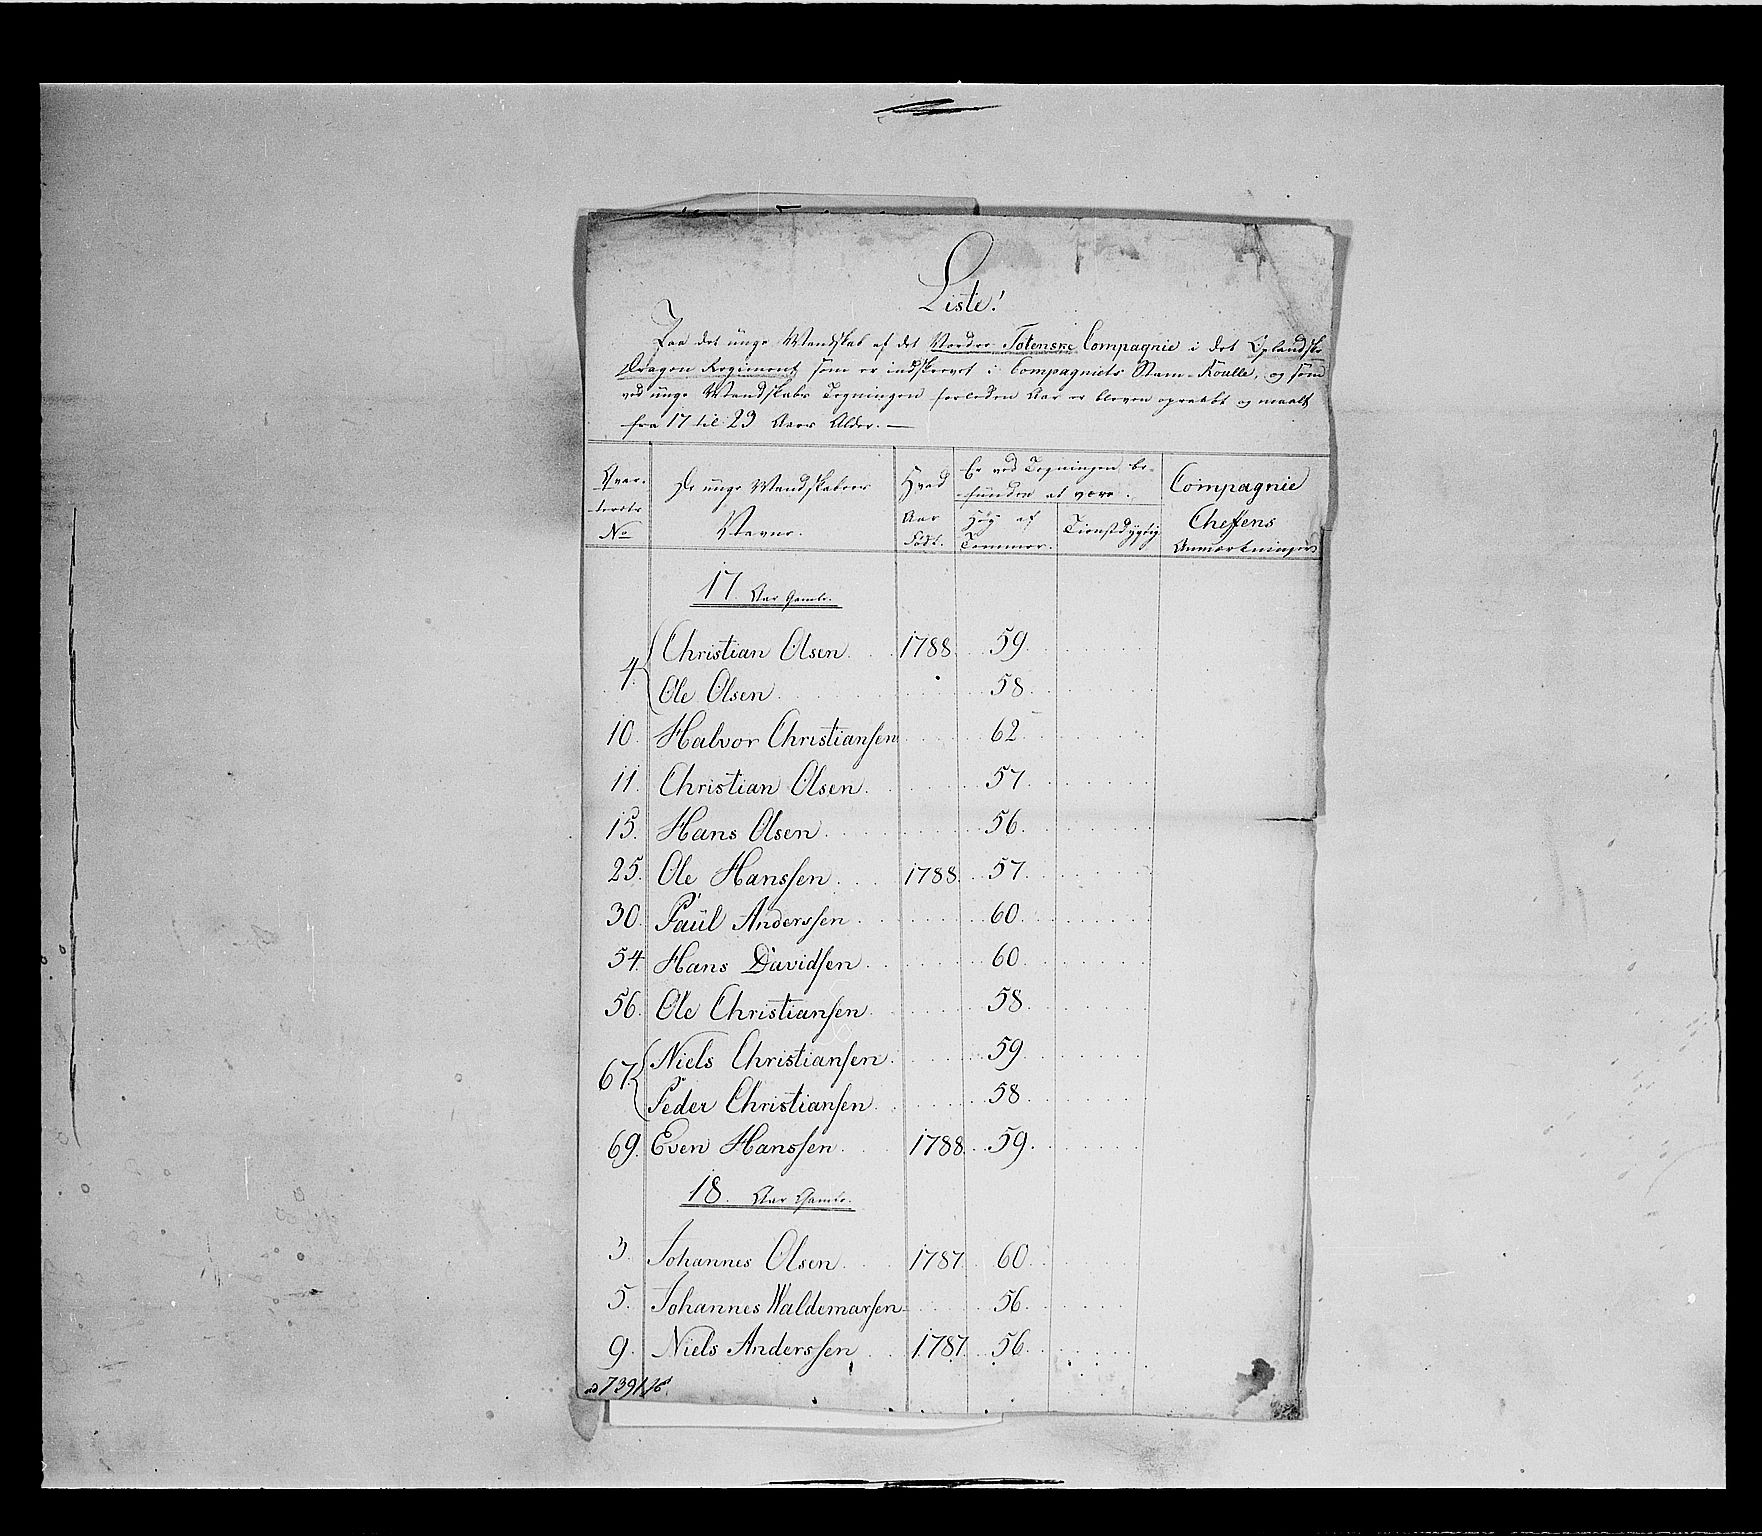 Liste!
Paa det unge Mandskab af det Nordre Totenske Compagnie i det Oplandske
Dragon Regiment som er indskrevet i Compagniets Stam-Roulle, og som
ved unge Mandskabs Tegningen forleden Aar er bleven opraabt og maalt
fra 17 til 23 Aars Alder. —
Qvar-
teerets
No
De unge Mandskabers
Navne.
Hvad
Aar
Født.
Er ved Tegningen be-
funden at være.
Høy af
Tommer.
Tienstdygtig
Compagnie
Cheffens
Anmærkninger
17 Aar Gamle.
4. Christian Olsen 1788. 59.
Ole Olsen 58.
10. Halvor Christiansen 62
11. Christian Olsen 57.
15. Hans Olsen 56.
25. Ole Hanssen 1788. 57.
30. Paül Anderssen 60.
54. Hans Davidsen 60.
56. Ole Christiansen 58.
67. Niels Christiansen 59.
Peder Christiansen 58.
69. Even Hanssen 1788. 59.
18. Aar Gamle.
3. Johannes Olsen 1787. 60.
5. Johannes Waldemarsen 56.
9. Niels Anderssen 1787. 56.
ad 7391